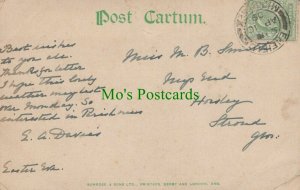 Post Cartum.
Best wishes
to you all.
Thanks for letter
I hope this lovely
weather may last
over Monday. So
interested in
E. A. Davies
Easter Eve
Miss M. B. Smith
End
Horsley
Stroud
Glos.
Mo's Postcards
BEMROSE & SONS LTD., PRINTERS, DERBY AND LONDON, ENG.